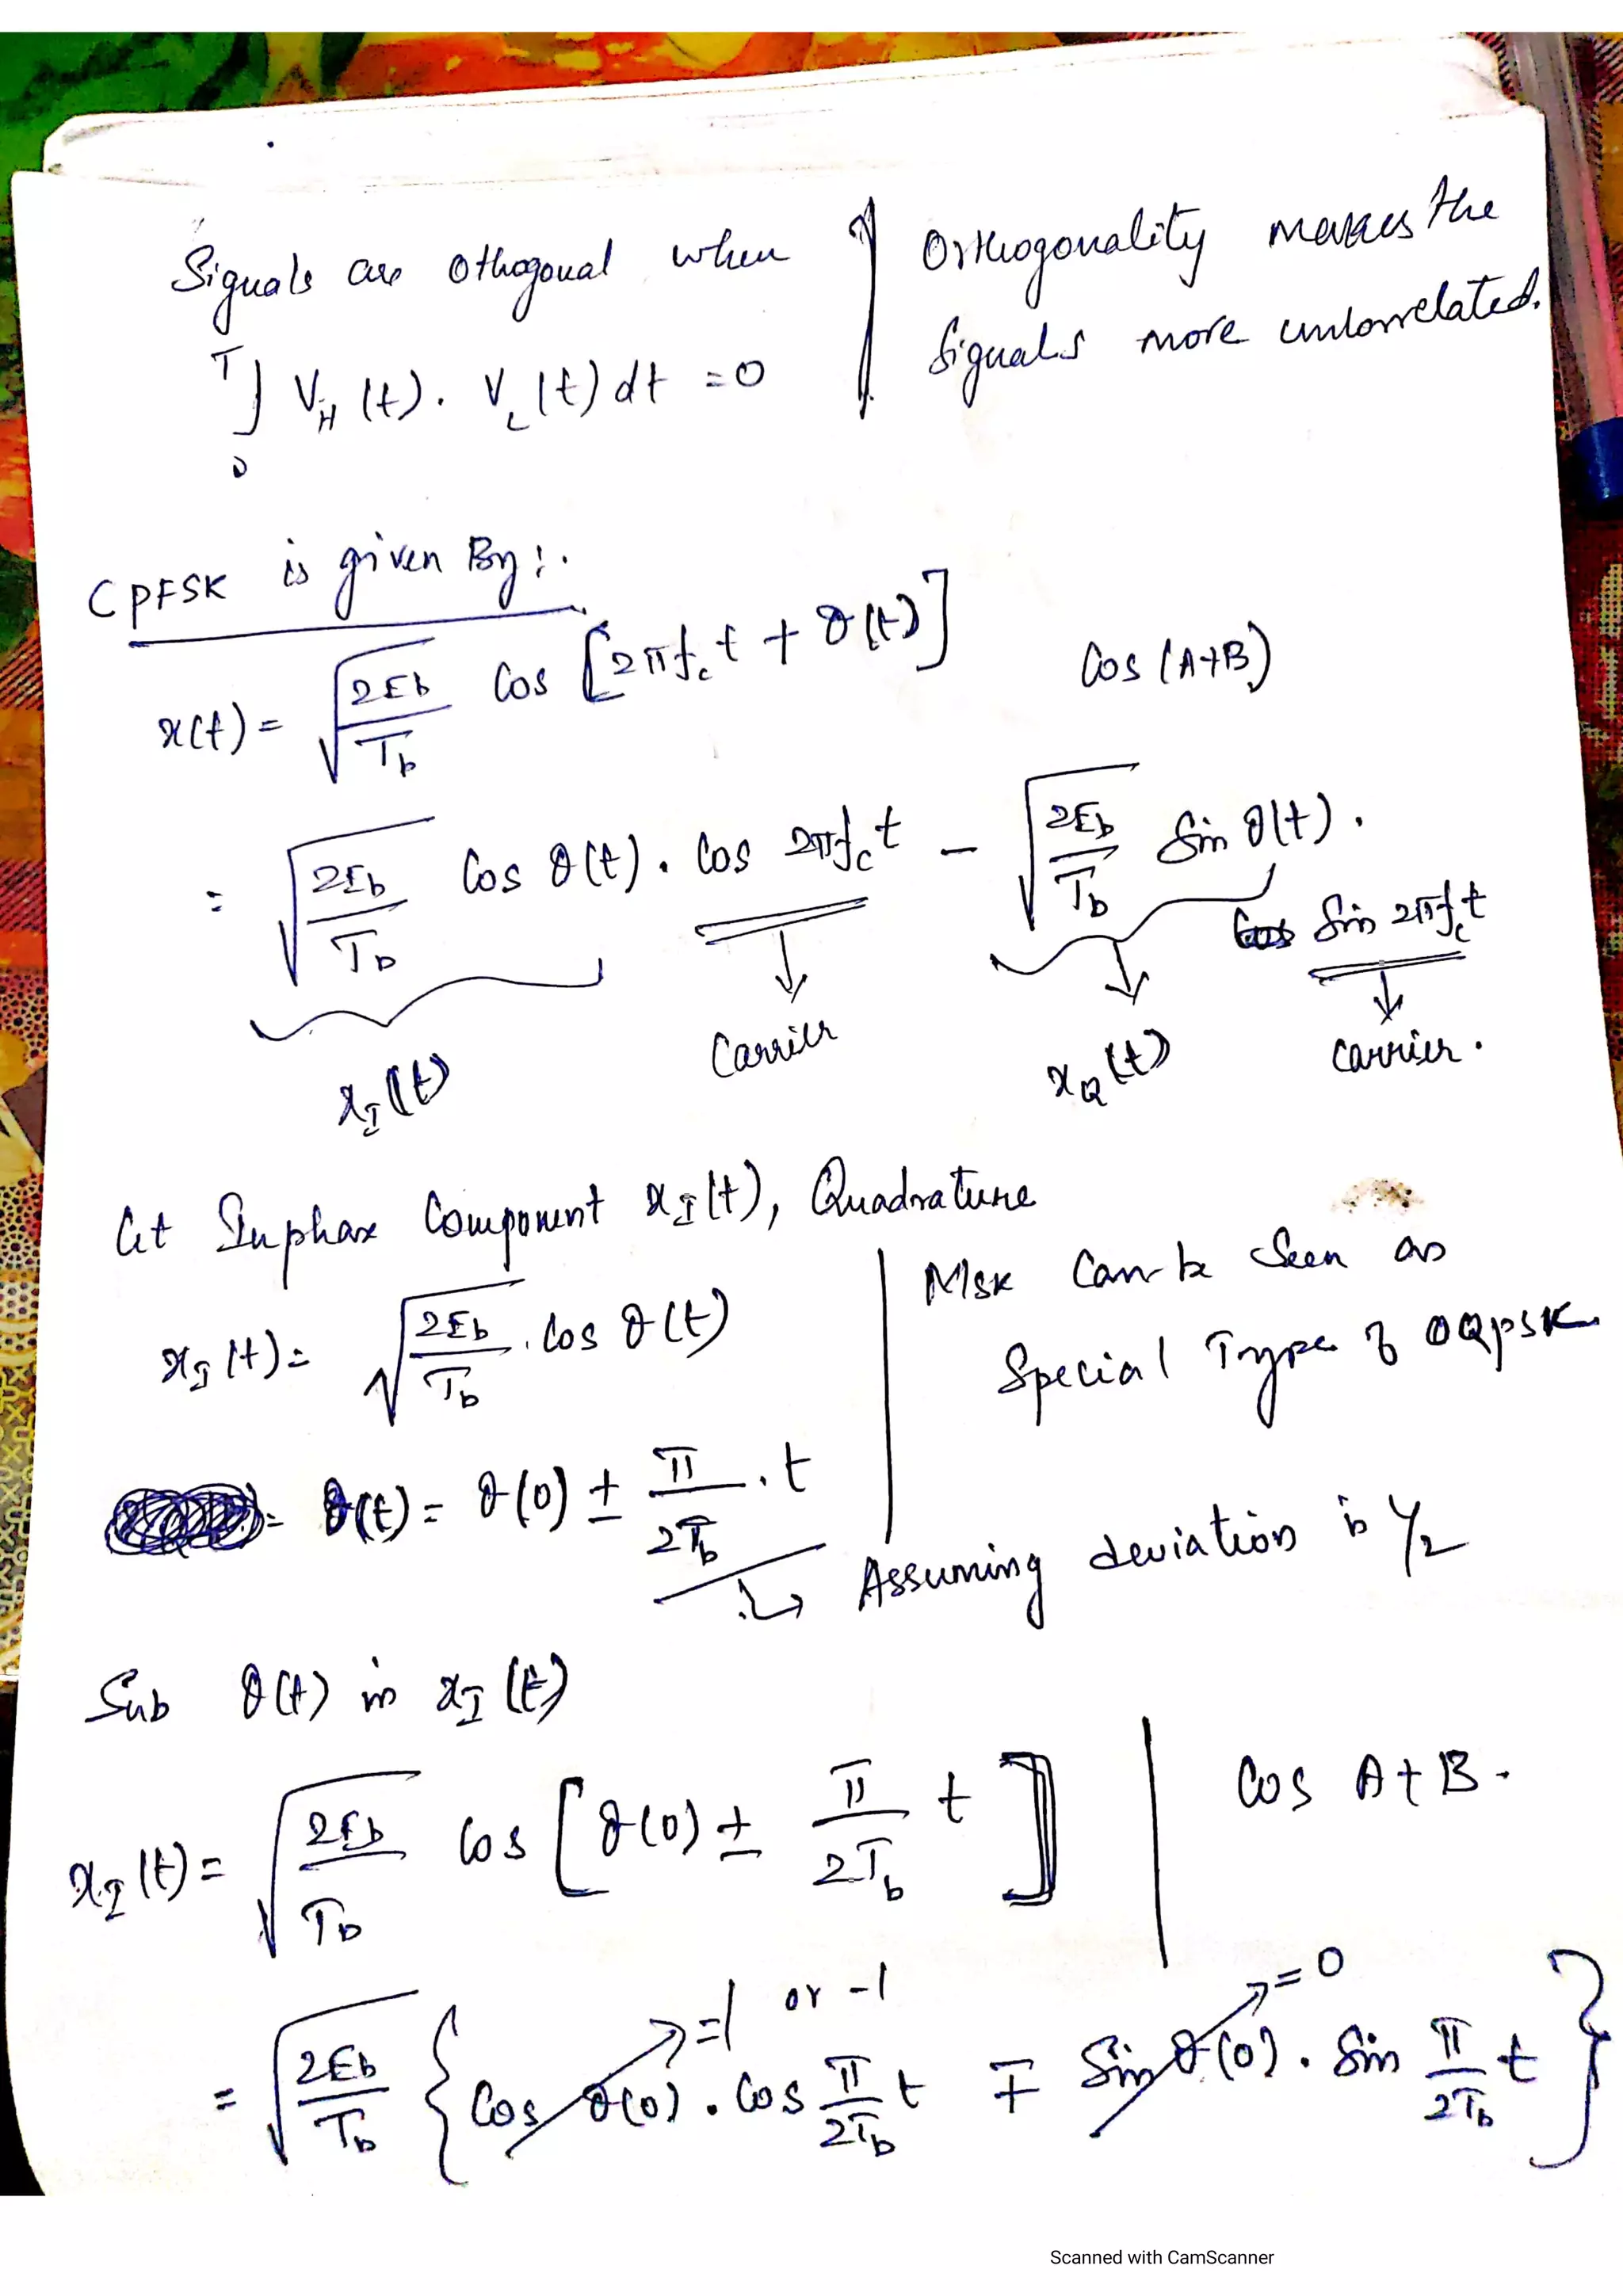 Signals are othogonal when
∫₀ᵀ V_H(t). V_L(t) dt = 0
Orthogonality makes the
signals more uncorrelated.
CPFSK is given By:.
x(t) = √(2Eb/Tb) Cos [2πf_c t + θ(t)]
Cos (A+B)
= √(2Eb/Tb) Cos θ(t). Cos 2πf_c t - √(2Eb/Tb) Sin θ(t).
Sin 2πf_c t
x_I(t)
Carrier
x_Q(t)
Carrier.
Let Inphase Component x_I(t), Quadrature
x_I(t) = √(2Eb/Tb) . Cos θ(t)
MSK Can be Seen as
Special Type of OQPSK.
θ(t) = θ(0) ± π/2Tb . t
Assuming deviation is 1/2
Sub θ(t) in x_I(t)
x_I(t) = √(2Eb/Tb) Cos [θ(0) ± π/2Tb t]
Cos A+B.
=1 or -1
=0
= √(2Eb/Tb) {Cos θ(0). Cos π/2Tb t ∓ Sin θ(0). Sin π/2Tb t}
Scanned with CamScanner